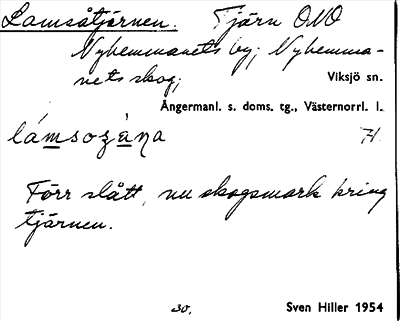 Lamsåtjärnen. Tjärn ONO
Nyhemmanets by; Nyhemma-
nets skog;
Viksjö sn.
Ångermanl. s. doms. tg., Västernorrl. l.
Förr slått, nu skogsmark kring
tjärnen.
30.
Sven Hiller 1954